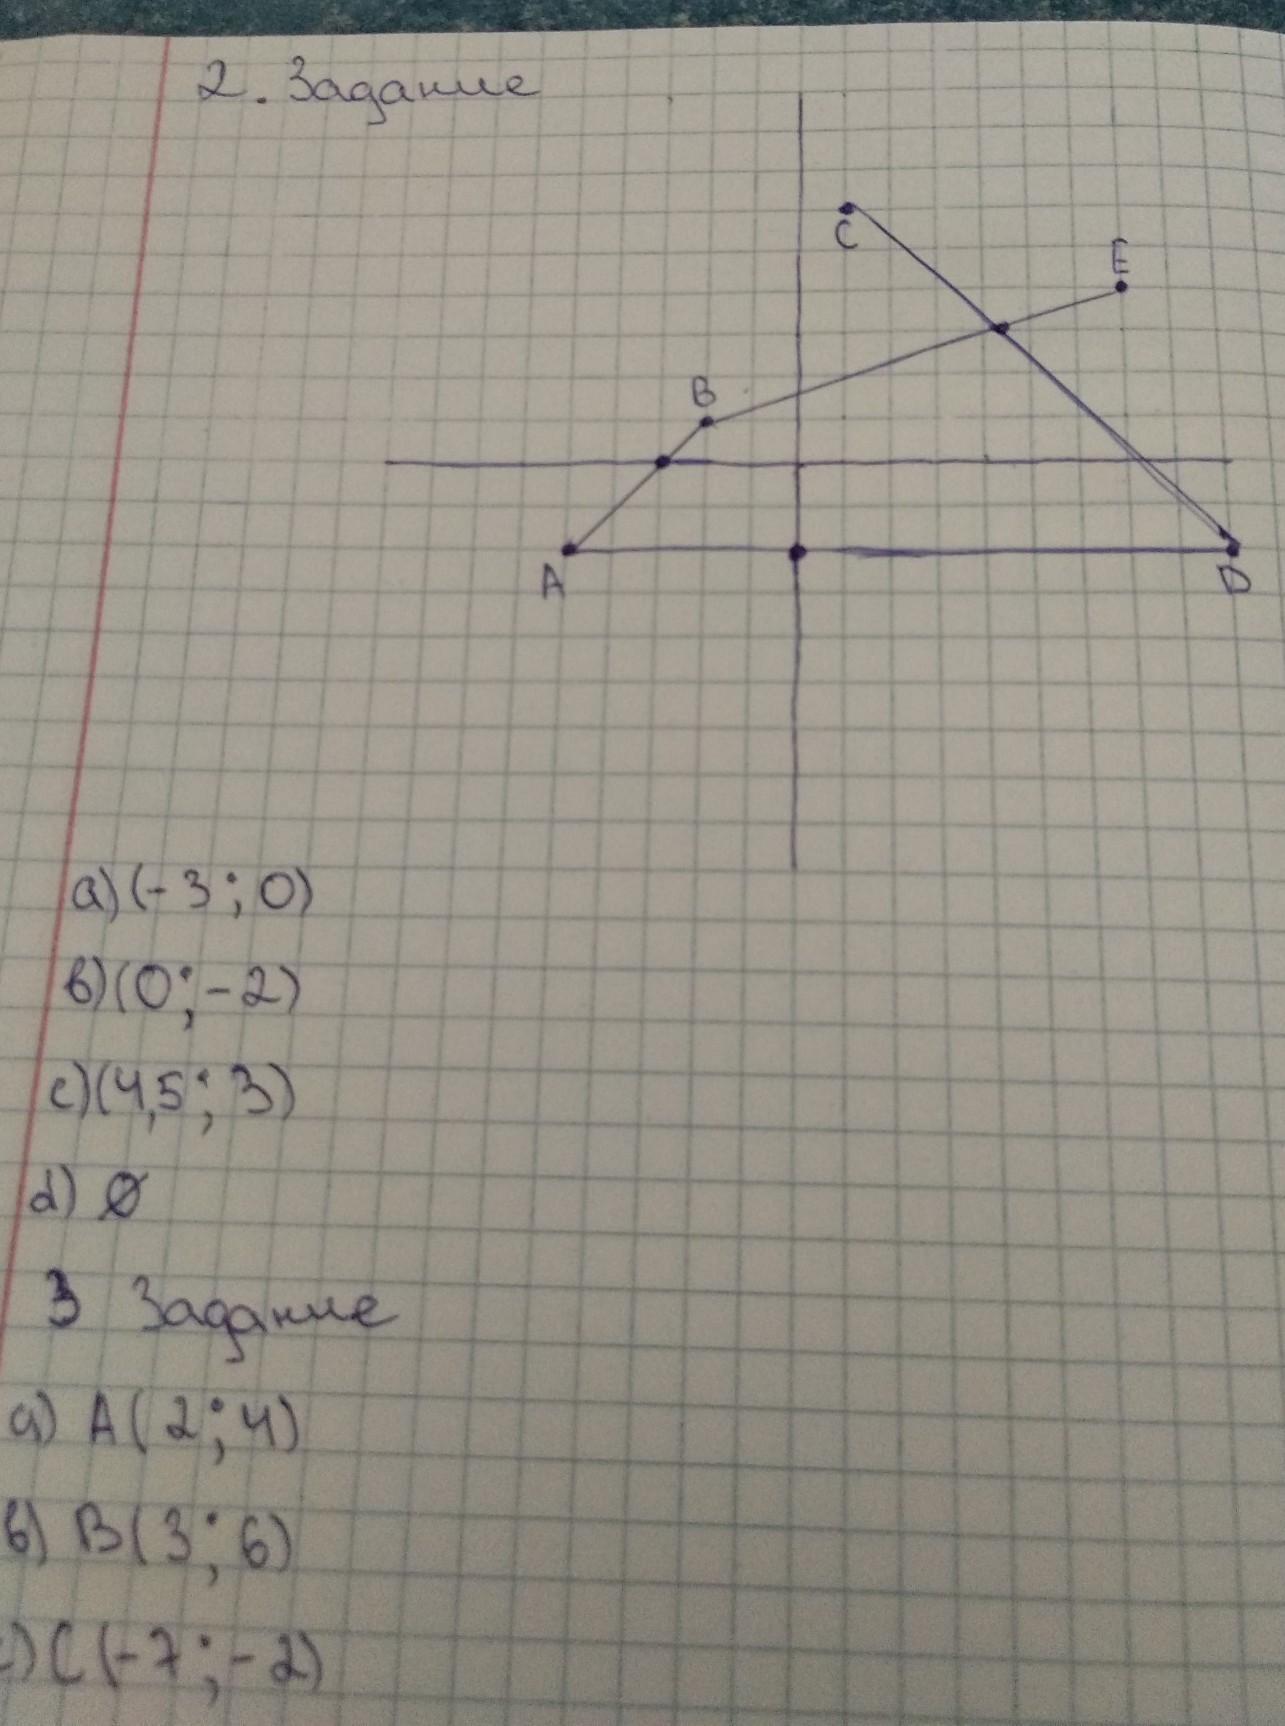 2. Задание
C
E
B
A
D
a) (-3; 0)
в) (0; -2)
c) (4,5; 3)
d) Ø
3 Задание
a) A (2; 4)
в) B (3; 6)
c) C (-7; -2)